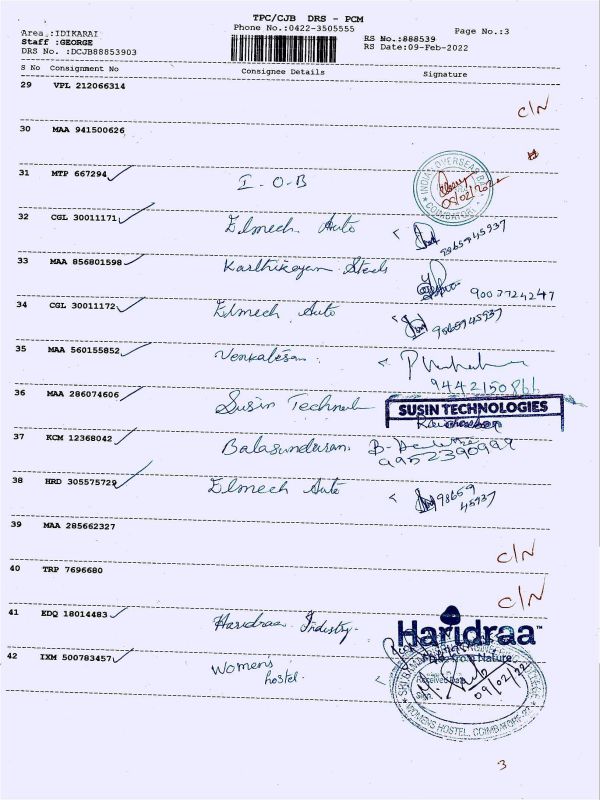 TPC/CJB DRS - PCM
Phone No.:0422-3505555
Page No.:3
Area :IDIKARAI
Staff :GEORGE
DRS No. :DCJB88853903
RS No.:888539
RS Date:09-Feb-2022
S No Consignment No Consignee Details Signature
29 VPL 212066314
C/N
30 MAA 941500626
31 MTP 667294 I.O.B
INDIAN OVERSEAS BA
COIMBATORE
32 CGL 30011171 Elmech Auto
33 MAA 856801598 Karthikeyan Steels
9003724247
34 CGL 30011172 Elmech Auto
9865745937
35 MAA 560155852 Venkatesan
36 MAA 286074606 Susin Technol
SUSIN TECHNOLOGIES
37 KCM 12368042 Balasundaram
9952390999
38 HRD 305575729 Elmech Auto
98659
45937
39 MAA 285662327
C/N
40 TRP 7696680
C/N
41 EDQ 18014483 Haridraa Industry.
Haridraa™
from Nature
42 IXM 500783457 Womens
hostel.
09/02/22
WOMENS HOSTEL, COIMBATORE
3